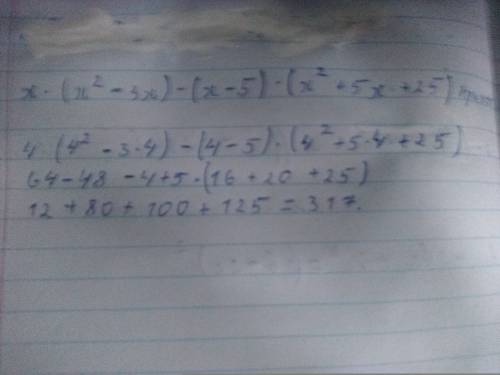 x · (x² - 3x) - (x - 5) · (x² + 5x + 25)
4 (4² - 3·4) - (4 - 5) · (4² + 5·4 + 25)
64 - 48 - 4 + 5 · (16 + 20 + 25)
12 + 80 + 100 + 125 = 317.